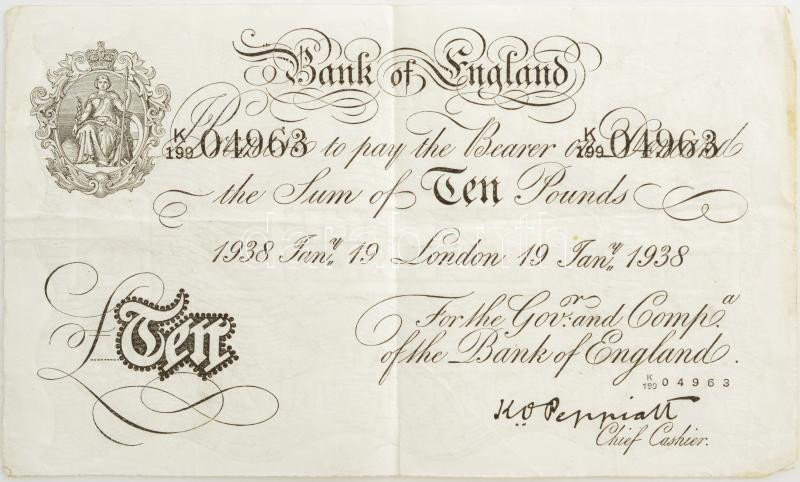 Bank of England
K/199 04963 K/199 04963
Promise to pay the Bearer on Demand
the Sum of Ten Pounds
1938 Jany 19 London 19 Jany 1938
For the Govr. and Compa.
of the Bank of England.
K/199 04963
£Ten
K O Peppiatt
Chief Cashier.
darabanth